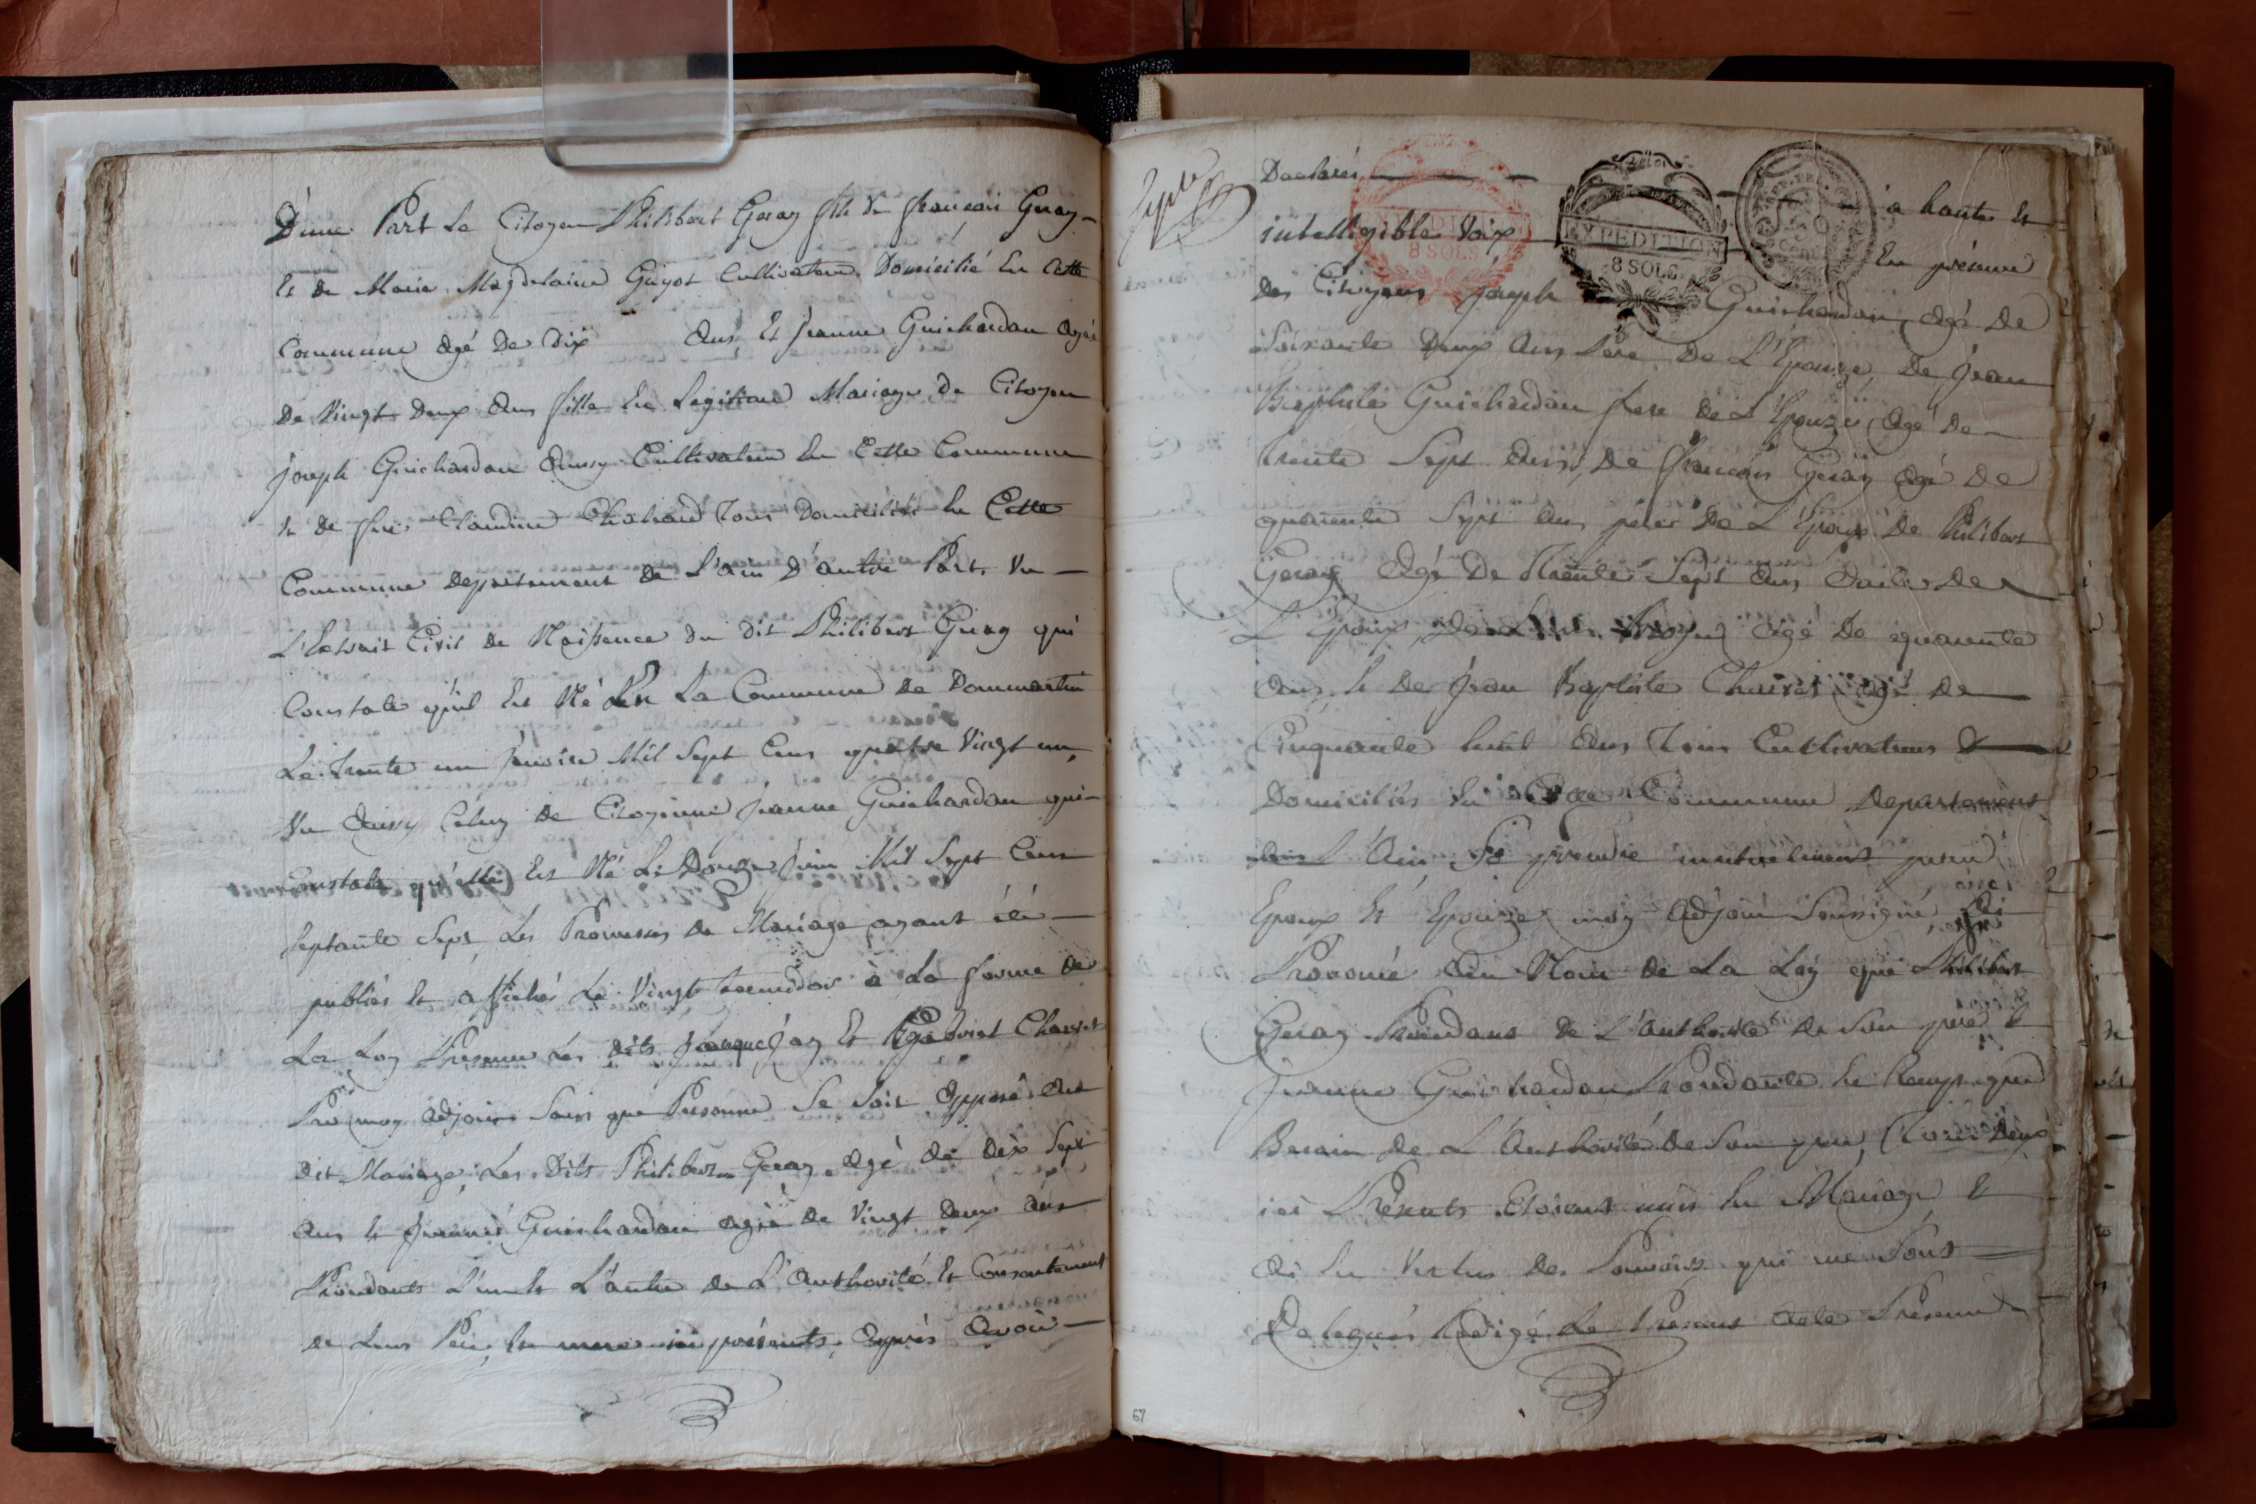 D'une Part Le Citoyen Philibert Geray fils de françois Geray
Et de Marie Magdelaine Guyot Cultivateur Domicilié En Cette
Commune agé De Dix ans, Et Jeanne Guichardan agée
De Vingt Deux Ans fille En Legitime Mariage de Citoyen
Joseph Guichardan Aussy Cultivateur En Cette Commune
Et De feue Claudine Tous Domiciliés En Cette
Commune Departement de L'ain D'autre Part, Vu
L'Extrait Civil de Naissance du dit Philibert Geray qui
Constate qu'il Est Né En La Commune de Dommartin
Le trente un Janvier Mil Sept Cent quatre Vingt un,
Vu Aussy Celuy de Citoyenne Jeanne Guichardan qui
Constate qu'elle Est Né Le Douze Juin Mil Sept Cent
Septante Sept, Les Promesses de Mariage ayant été
publiés Et affichés Le Vingt termidor à La forme de
La Loy Presence Les dits Et Chavet
moy adjoint Sans que Personne Se Soit Opposé Au
dit Mariage; Les Dits Philibert Geray agé de Dix Sept
Ans Et Jeanne Guichardan agée de Vingt Deux ans
L'un Et L'autre de L'Authorité Et Consentement
de Leur Père, Et mere ici présents, Après Avoir
Declaré à haute Et
intelligible Voix En présence
EXPEDITION
8 SOLS
EXPEDITION
8 SOLS
Des Citoyens Joseph Guichardan agé De
Soixante Deux Ans Père De L'Epouze, De Jean
Baptiste Guichardan frere De L'Epouze, Agé De
trente Sept Ans, De françois Geray agé De
quarente Sept Ans père De L'Epoux De Philibert
Geray Agé De Trente Sept Ans De
L'Epoux agé De quarente
Ans, Et De Jean Baptiste Chavet agé De
Cinquante huit Ans Tous Cultivateurs &
Domiciliés En Cette Commune Departement
L'Ain, Se prendre mutuelment pour
Epoux Et Epouze moy Adjoint Soussigné, Ai
Prononcé Au Nom de La Loy que Philibert
Geray de L'authorité de Son père Et
Jeanne Guichardan
Besoin De L'Authorité De Son père, Tous Deux
ici Présents Etoient unis En Mariage Et
Ai En Vertus Des Pouvoirs qui me Sont
Delegués Redigé Le Present Acte Présence
67